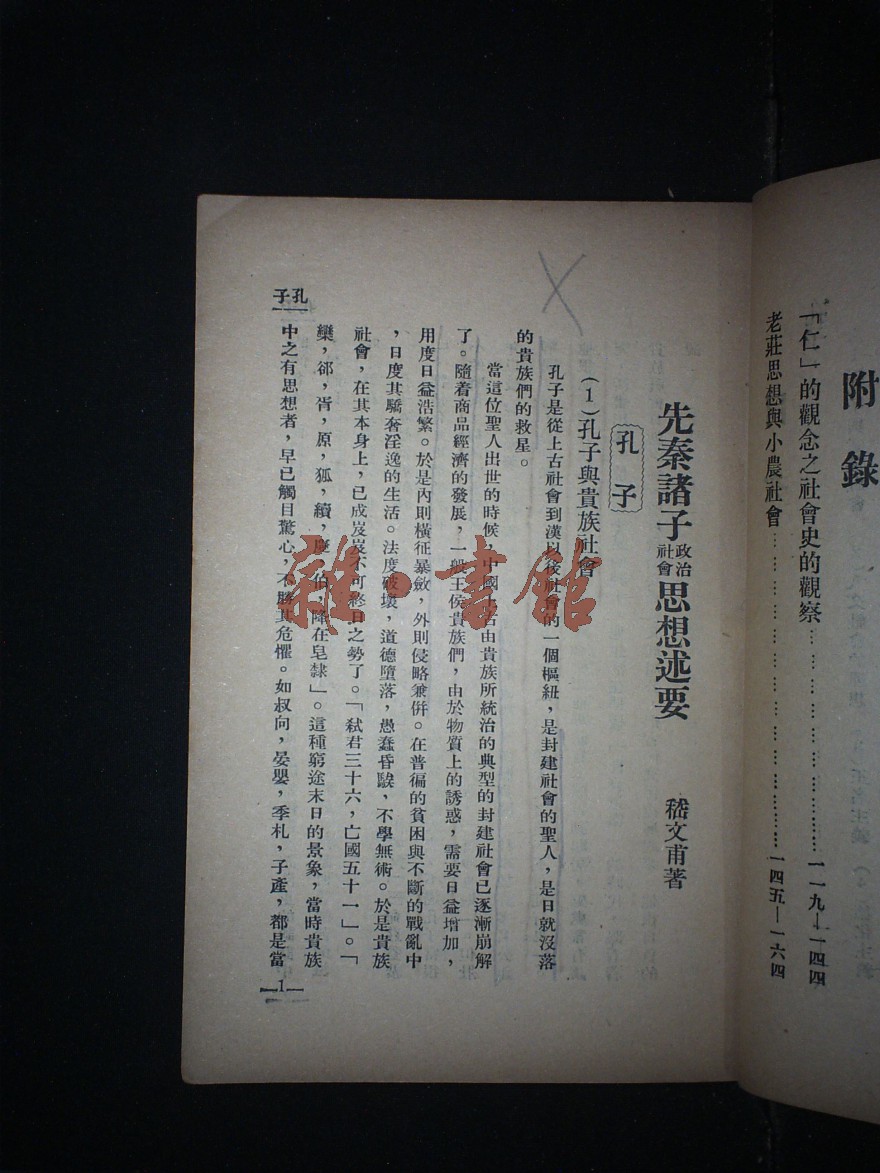 附錄
「仁」的觀念之社會史的觀察……………………一一九—一四四
老莊思想與小農社會……………………一四五—一六四
先秦諸子政治社會思想述要
嵇文甫著
孔子
(1)孔子與貴族社會
孔子是從上古社會到漢以後社會的一個樞紐，是封建社會的聖人，是日就沒落
的貴族們的救星。
當這位聖人出世的時候，中國上古由貴族所統治的典型的封建社會已逐漸崩解
了。隨着商品經濟的發展，一般王侯貴族們，由於物質上的誘惑，需要日益增加，
用度日益浩繁。於是內則橫征暴斂，外則侵略兼併。在普徧的貧困與不斷的戰亂中
，日度其驕奢淫逸的生活。法度破壞，道德墮落，愚蠢昏騃，不學無術。於是貴族
社會，在其本身上，已成岌岌不可終日之勢了。「弒君三十六，亡國五十一」。「
欒，郤，胥，原，狐，續，慶，伯，降在皂隸」。這種窮途末日的景象，當時貴族
中之有思想者，早已觸目驚心，不勝其危懼。如叔向，晏嬰，季札，子產，都是當
孔子
—1—
雜·書館